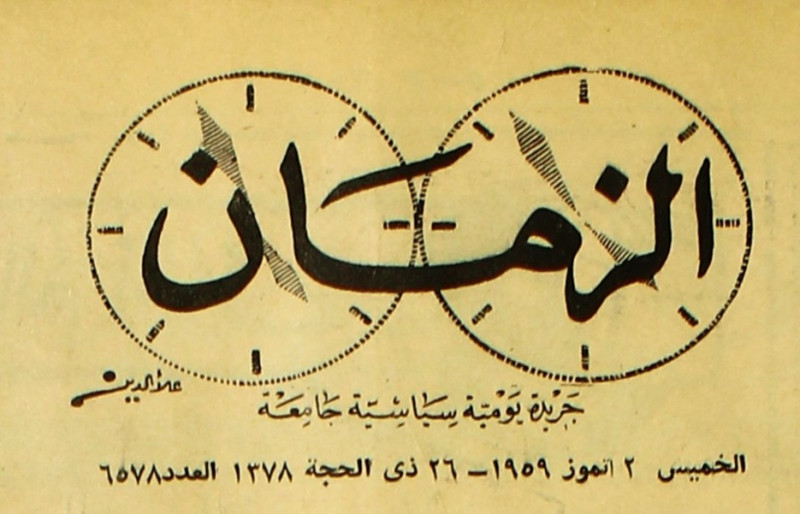 الزمان
علاء الدين
جَريدة يَوميّة سِيَاسْيّة جَامِعَة
الخميس ٢ تموز ١٩٥٩ – ٢٦ ذى الحجة ١٣٧٨ العدد ٦٥٧٨